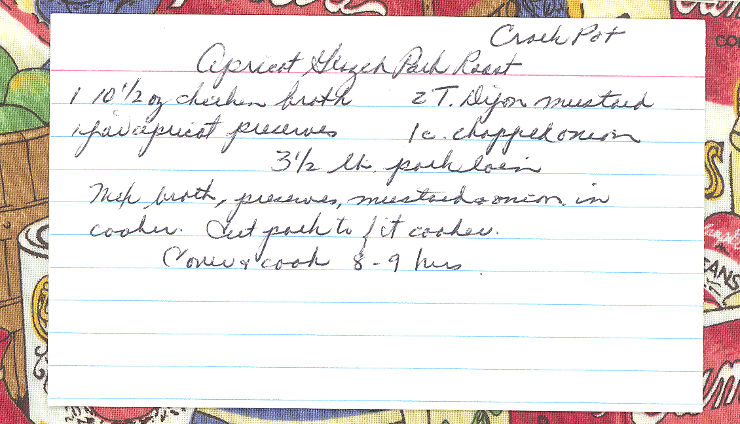 Crock Pot
Apricot Glazed Pork Roast
1 10 1/2 oz chicken broth 2 T. Dijon mustard
1 jar apricot preserves 1 c. chopped onion
3 1/2 lb. pork loin
Mix broth, preserves, mustard & onion in
cooker. Cut pork to fit cooker.
Cover & cook 8-9 hrs